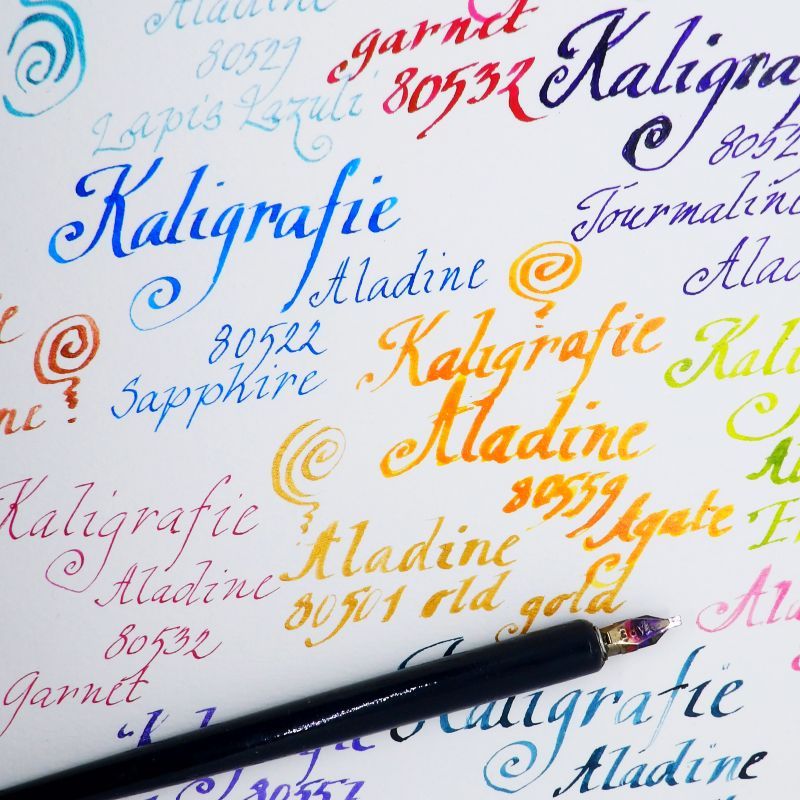 Aladine
80529
Lapis Lazuli
garnet
80532
Kaligra
8052
Tourmalin
Alad
Kaligrafie
Aladine
80522
Sapphire
Kaligrafie
Aladine
80559
Agate
Kali
Kaligrafie
Aladine
80532
Garnet
Aladine
80501 old gold
Kaligrafie
Aladine
80557